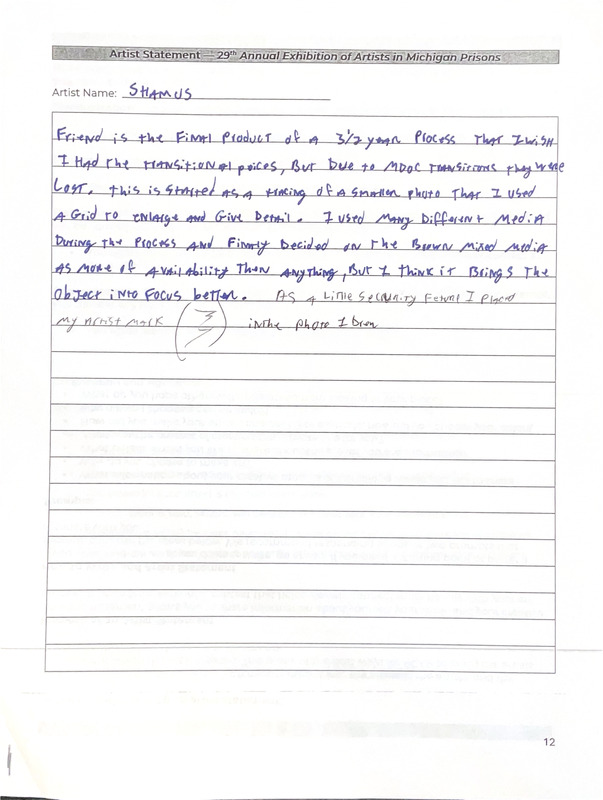 Artist Statement — 29th Annual Exhibition of Artists in Michigan Prisons
Artist Name: SHAMUS
Friend is the Final Product of a 3 1/2 year Process That I wish
I Had The transitional peices, But Due to MDOC Transitions they were
Lost. This is started as a tracing of a smaller photo That I used
A Grid to enlarge and Give Detail. I used Many Different Media
During the Process and Finally Decided on The Brown Mixed Media
As More of Availability Then Anything, But I think it Brings The
Object into Focus better. As a little Security I Placed
my Artist Mark in the photo I
12